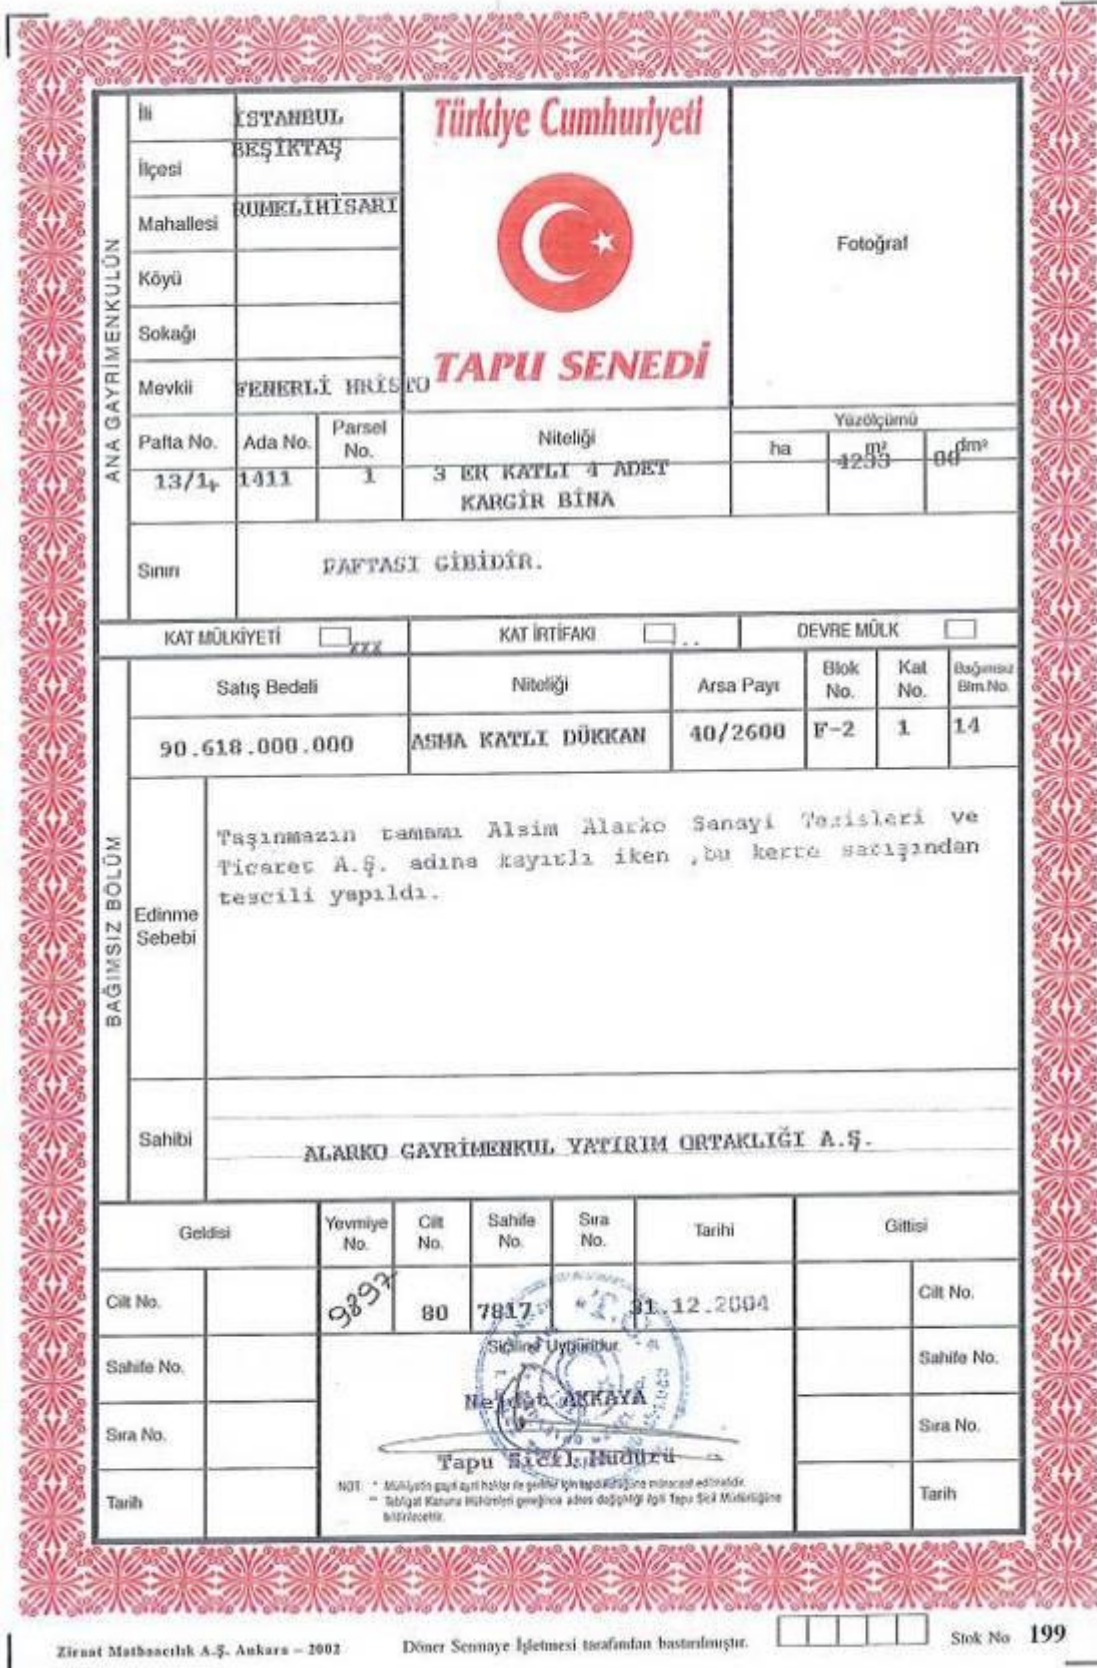 Türkiye Cumhuriyeti
TAPU SENEDİ
Fotoğraf
ANA GAYRİMENKULÜN
İli İSTANBUL
İlçesi BEŞİKTAŞ
Mahallesi RUMELİHİSARI
Köyü
Sokağı
Mevkii FENERLİ HRİSTO
Pafta No. Ada No. Parsel No. Niteliği Yüzölçümü
ha m² dm²
13/1 1411 1 3 ER KATLI 4 ADET 4233 00
KARGİR BİNA
Sınırı PAFTASI GİBİDİR.
KAT MÜLKİYETİ xxx KAT İRTİFAKI .. DEVRE MÜLK
BAĞIMSIZ BÖLÜM
Satış Bedeli Niteliği Arsa Payı Blok No. Kat No. Bağımsız Blm.No.
90.618.000.000 ASMA KATLI DÜKKAN 40/2600 F-2 1 14
Edinme Sebebi
Taşınmazın tamamı Alsim Alarko Sanayi Tesisleri ve
Ticaret A.Ş. adına kayıtlı iken ,bu kerre satışından
tescili yapıldı.
Sahibi
ALARKO GAYRİMENKUL YATIRIM ORTAKLIĞI A.Ş.
Geldisi Yevmiye No. Cilt No. Sahife No. Sıra No. Tarihi Gittisi
Cilt No. 9897 80 7817 31.12.2004 Cilt No.
Siciline Uygundur.
Sahife No. Sahife No.
AKKAYA
Sıra No. Sıra No.
Tapu Sicil Müdürü
Tarih Tarih
NOT: * Mülkiyetin gayri ayni haklar ile şerhler için tapu kütüğüne müracaat edilmelidir.
** Tebligat Kanunu Hükümleri gereğince adres değişikliği ilgili Tapu Sicil Müdürlüğüne
bildirilecektir.
Ziraat Matbaacılık A.Ş. Ankara – 2002 Döner Sermaye İşletmesi tarafından bastırılmıştır. Stok No 199